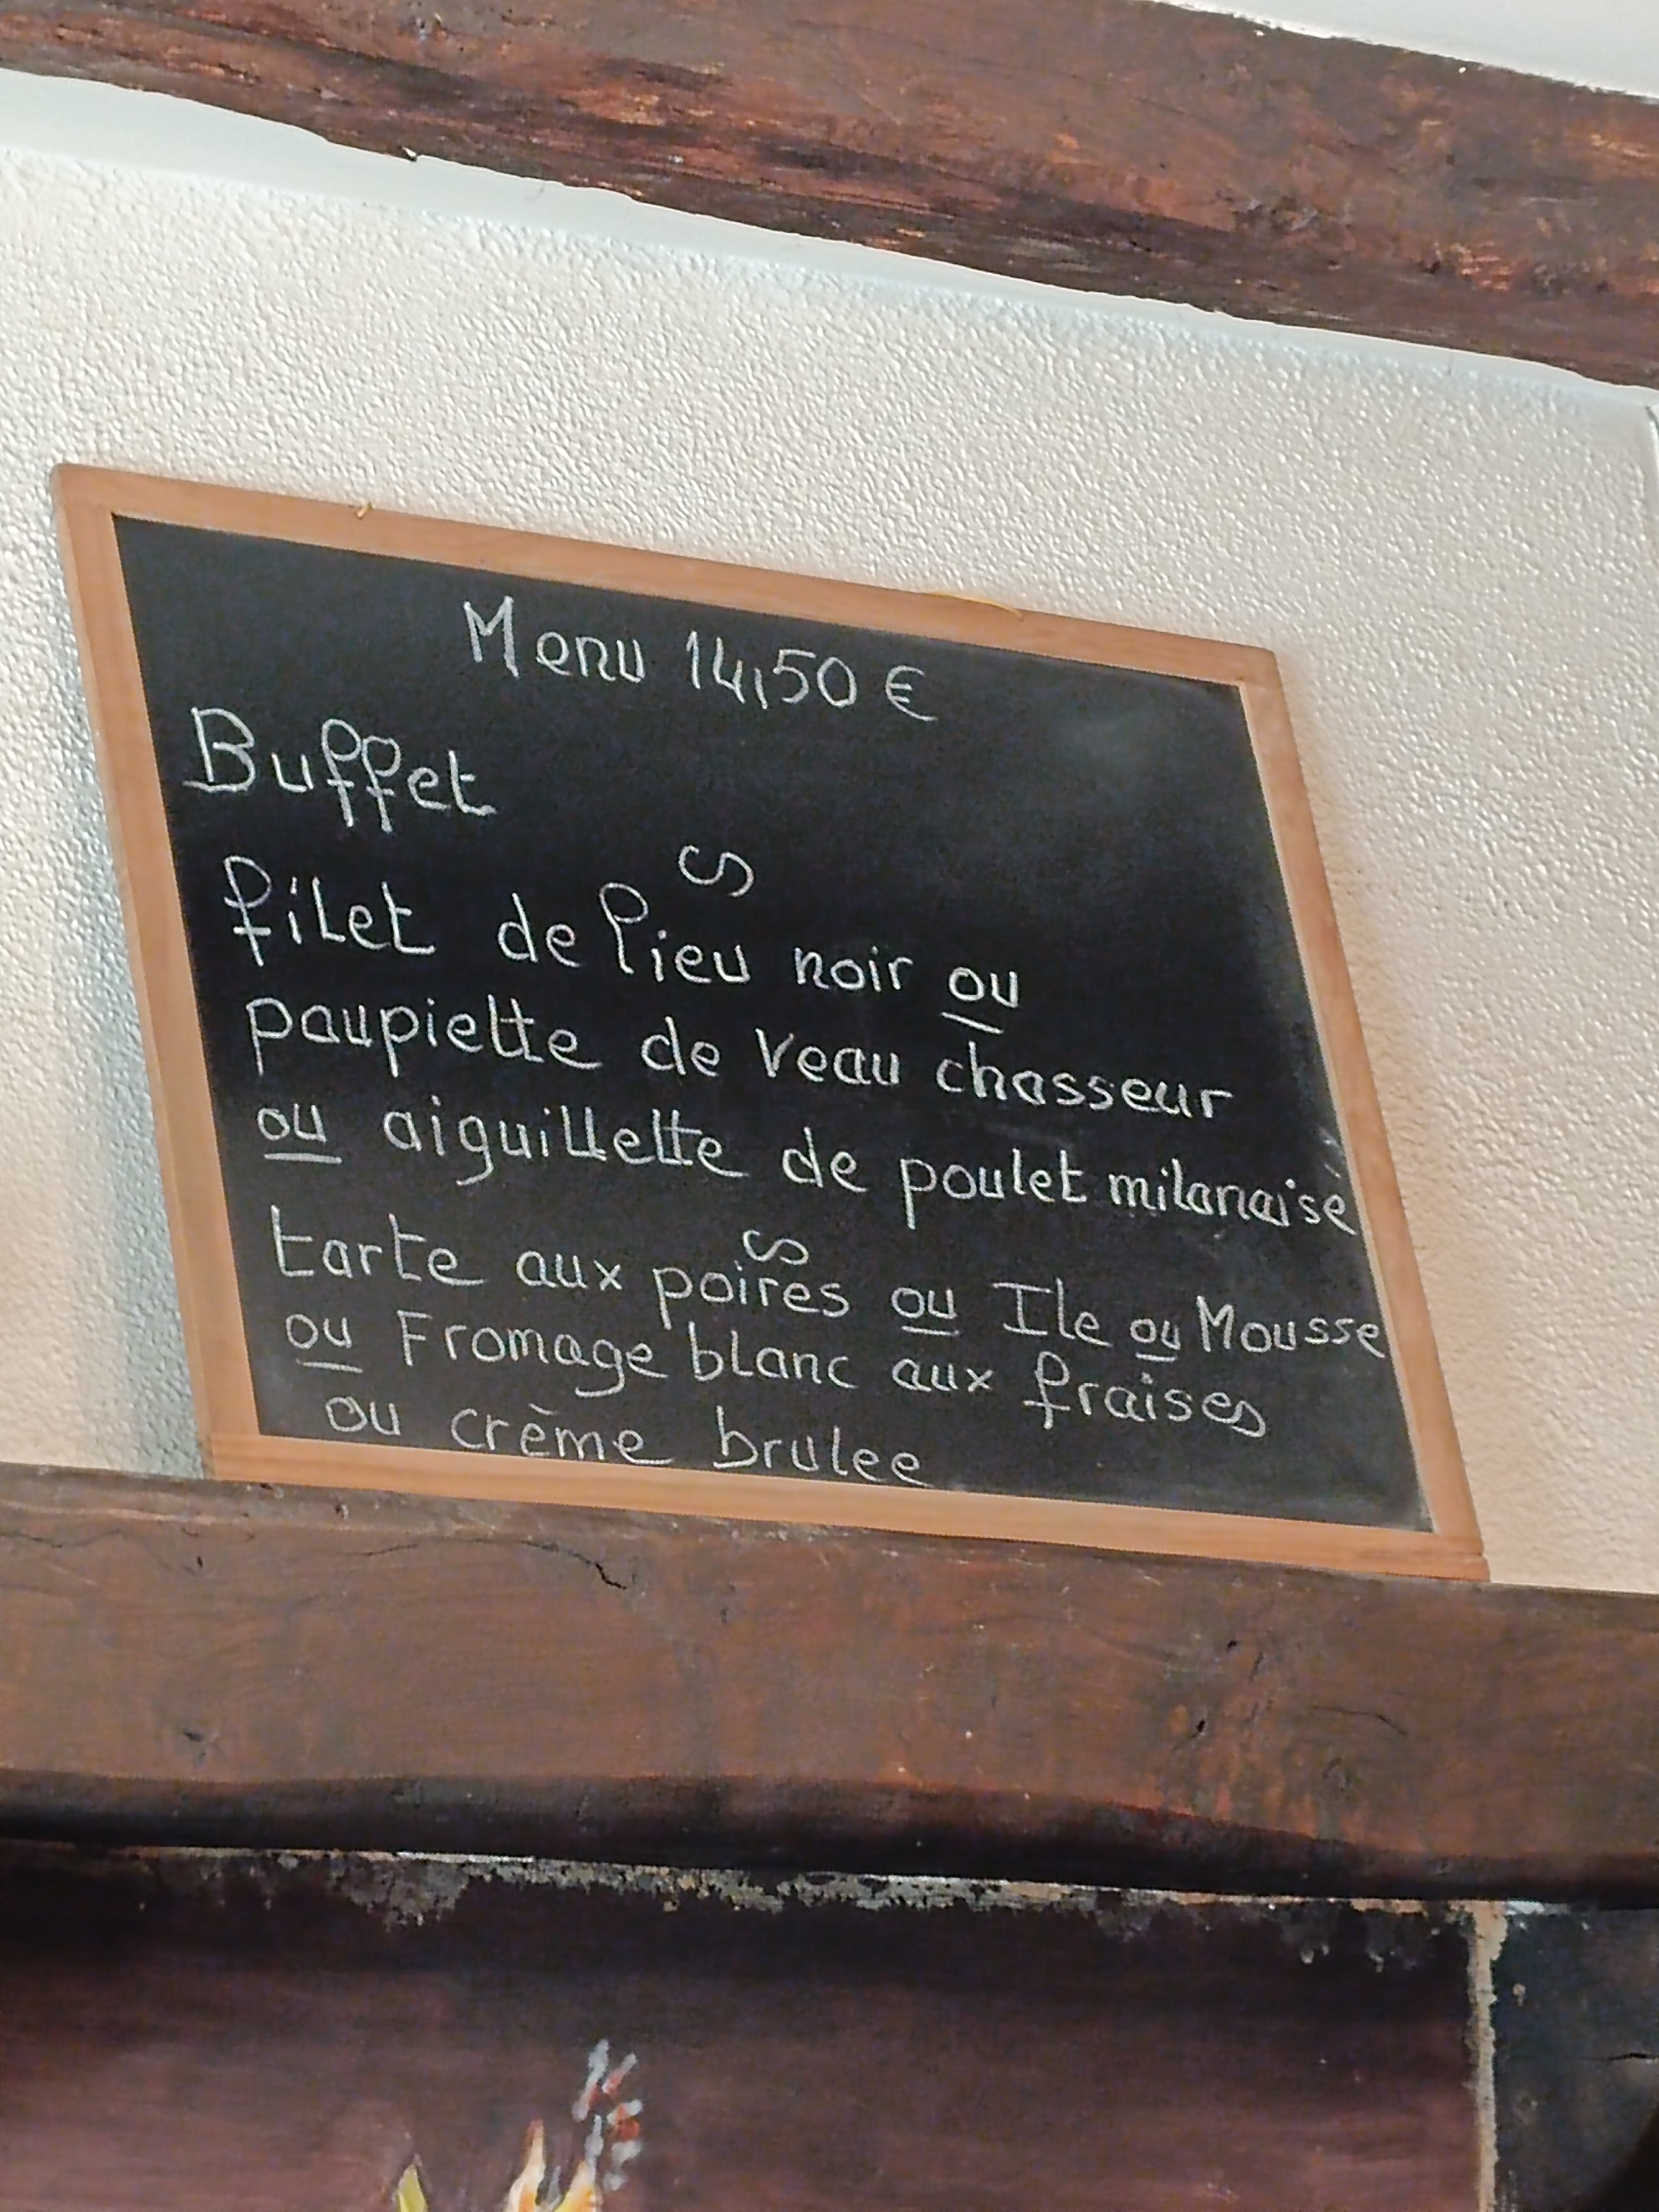 Menu 14,50 €
Buffet
filet de lieu noir ou
paupiette de veau chasseur
ou aiguillette de poulet milanaise
tarte aux poires ou Ile ou Mousse
ou Fromage blanc aux fraises
ou crème brulee